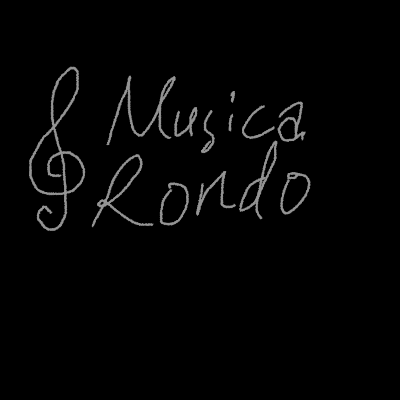 Musica
Rondo